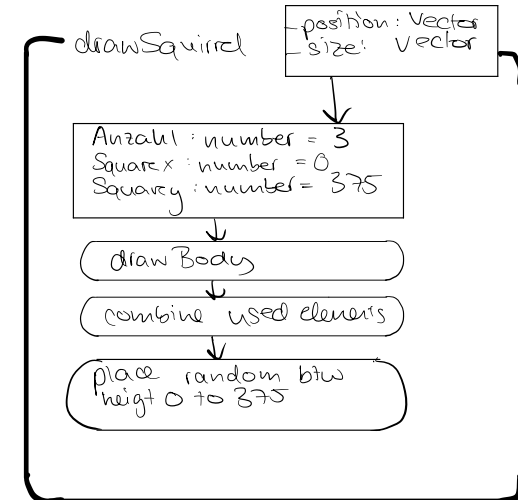 drawSquirrel
- position: Vector
- size: Vector
Anzahl : number = 3
Squarex : number = 0
Squarey : number = 375
draw Body
combine used elements
place random btw
heigt 0 to 375